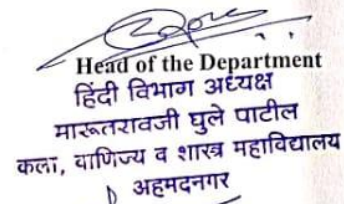 Head of the Department
हिंदी विभाग अध्यक्ष
मारूतरावजी घुले पाटील
कला, वाणिज्य व शास्त्र महाविद्यालय
अहमदनगर